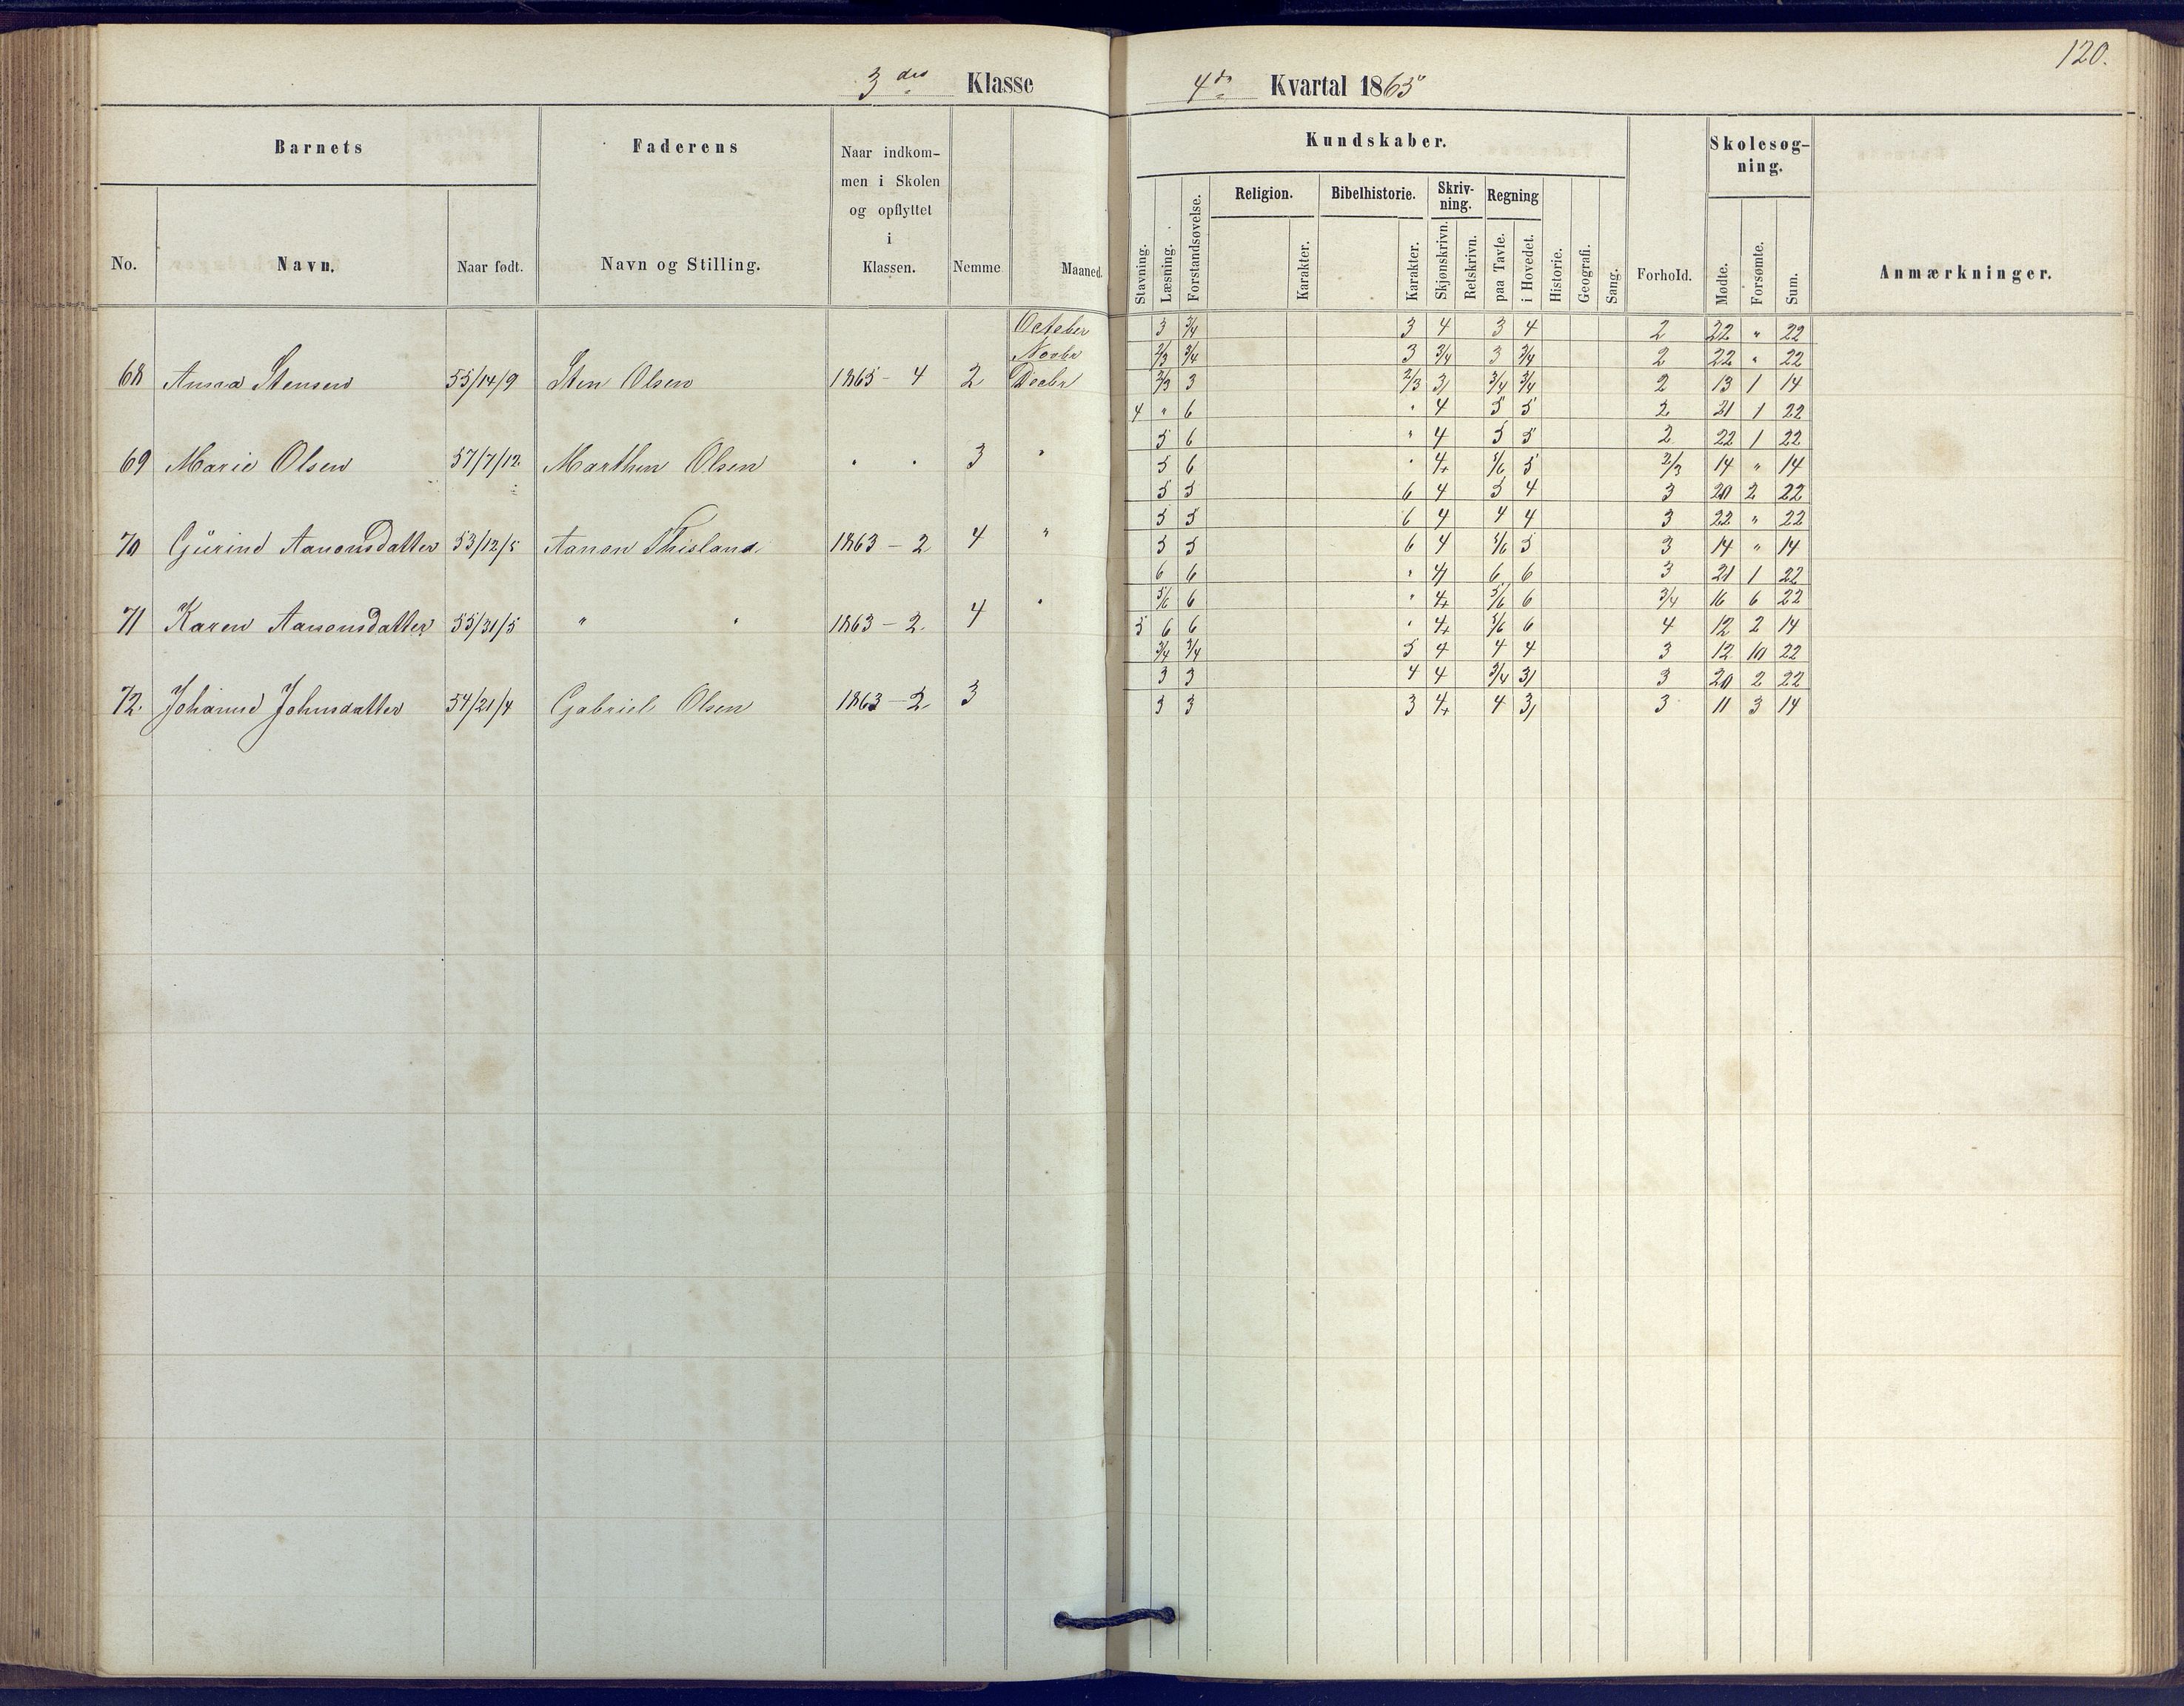 120.
3die Klasse
4de Kvartal 1865
Barnets
Faderens
Naar indkom-
men i Skolen
og opflyttet
i
Klassen.
No. Navn. Naar født. Navn og Stilling. Nemme Maaned.
Kundskaber.
Skolesøg-
ning.
Religion. Bibelhistorie. Skriv-
ning. Regning
Stavning. Læsning. Forstandsøvelse. Karakter. Karakter. Skjønskrivn. Retskrivn. paa Tavle. i Hovedet. Historie. Geografi. Sang. Forhold. Mødte. Forsømte. Sum. Anmærkninger.
October
Novbr
68 Anna Stensen 55/14/9 Sten Olsen 1865 - 4 2 Decbr
69 Marie Olsen 57/7/12 Marthin Olsen " " 3 "
70 Gürine Aanonsdatter 53/12/5 Aanon Thisland 1863 - 2 4 "
71 Karen Aanonsdatter 55/31/5 " " 1863 - 2. 4 "
72. Johanne Johnsdatter 54/21/4 Gabriel Olsen 1863 - 2 3
3 3/4 3 4 3 4 2 22 " 22
2/3 3/4 3 3/4 3 3/4 2 22 " 22
2/3 3 2/3 3/ 3/4 3/4 2 13 1 14
4 " 6 " 4 5 5 2 21 1 22
5 6 " 4 5 5 2 22 1 22
5 6 " 4+ 5/6 5 2/3 14 " 14
5 5 6 4 5 4 3 20 2 22
5 5 6 4 4 4 3 22 " 22
5 5 6 4 5/6 5 3 14 " 14
6 6 " 4/ 6 6 3 21 1 22
5/6 6 " 4+ 5/6 6 3/4 16 6 22
5 6 6 " 4+ 5/6 6 4 12 2 14
3/4 3/4 5 4 4 4 3 12 10 22
3 3 4 4 3/4 3/ 3 20 2 22
3 3 3 4+ 4 3/ 3 11 3 14